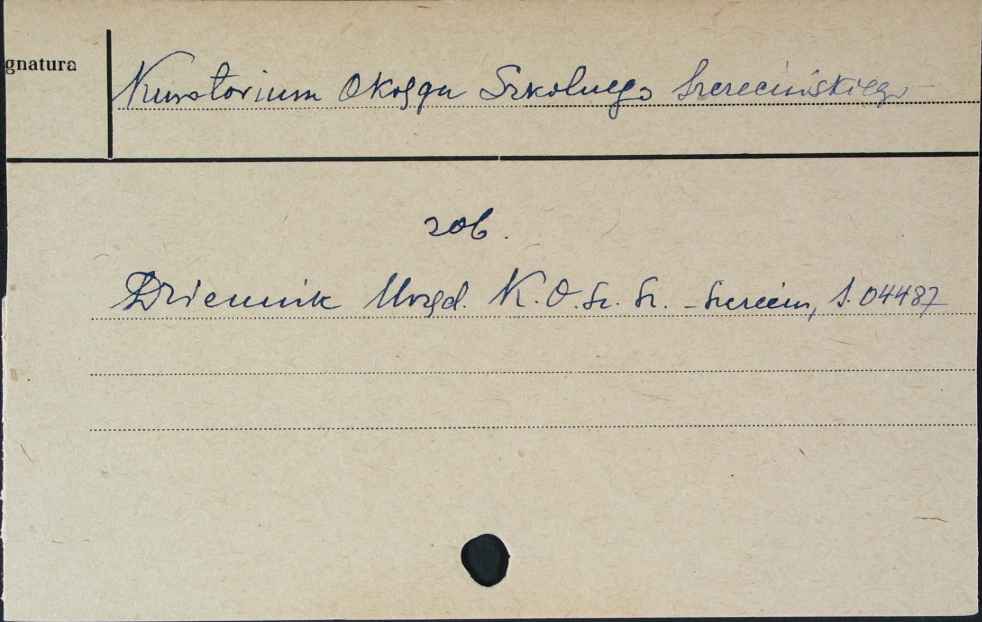 gnatura
Kuratorium Okręgu Szkolnego Szczecińskiego
zob.
Dziennik Urzęd. K. O. Sz. Sz. - Szczecin, S. 04487